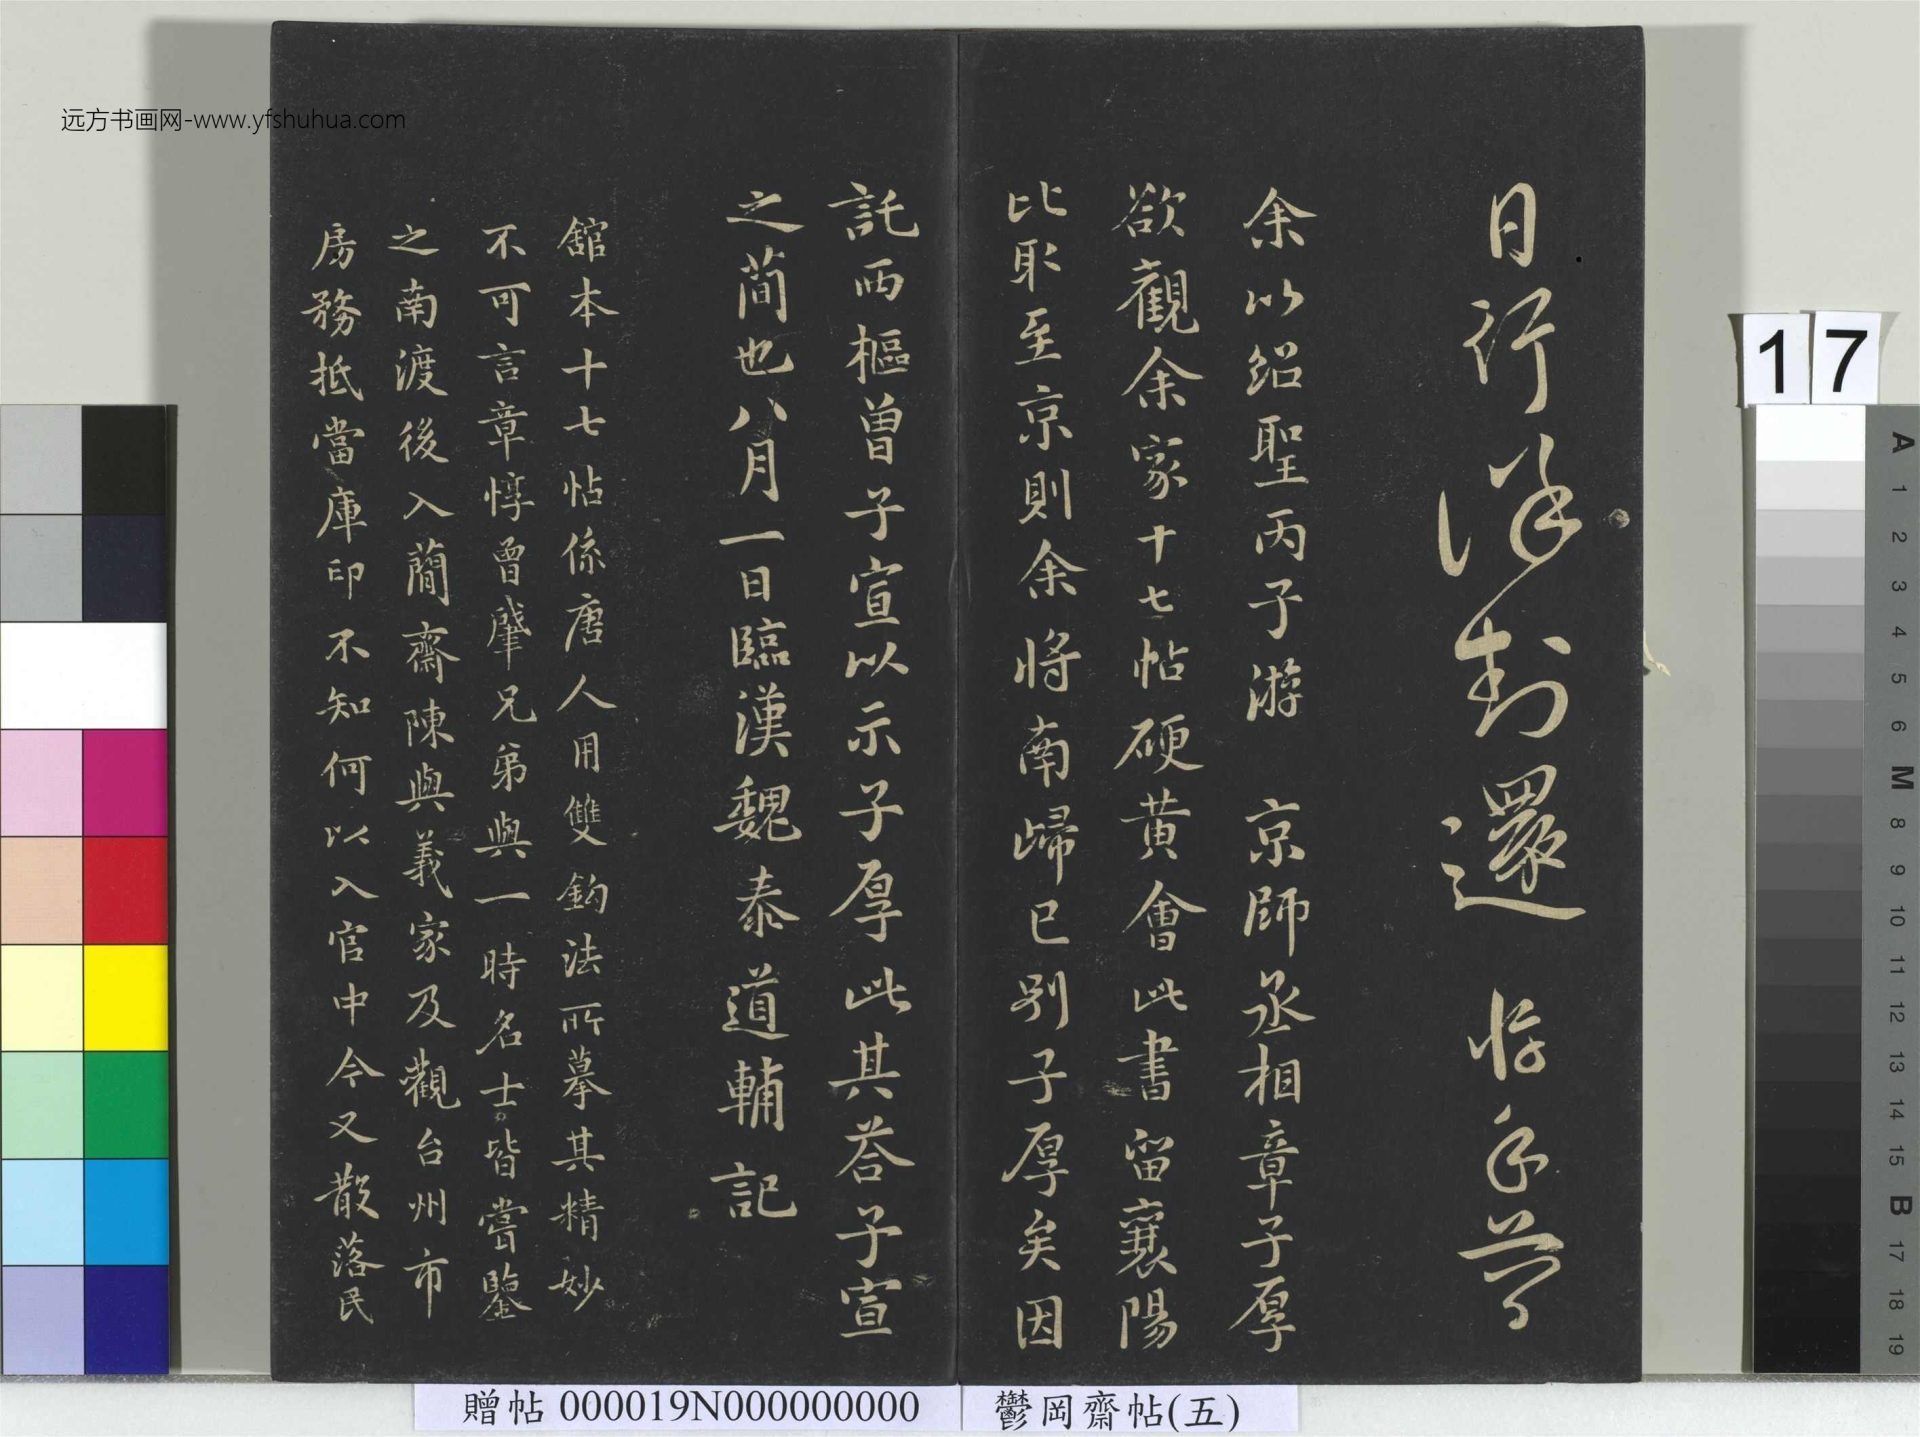 远方书画网-www.yfshuhua.com
日行
對還
余以紹聖丙子游 京師丞相章子厚
欲觀余家十七帖硬黃會此書留襄陽
比取至京則余將南歸已別子厚矣因
託西樞曾子宣以示子厚此其答子宣
之簡也八月一日臨漢魏泰道輔記
館本十七帖係唐人用雙鈎法所摹其精妙
不可言章惇曾肇兄弟與一時名士皆嘗鑒
之南渡後入簡齋陳與義家及觀台州市
房務抵當庫印不知何以入官中今又散落民
17
A
1
2
3
4
5
6
M
8
9
10
11
12
13
14
15
B
17
18
19
贈帖 000019N000000000
鬱岡齋帖(五)